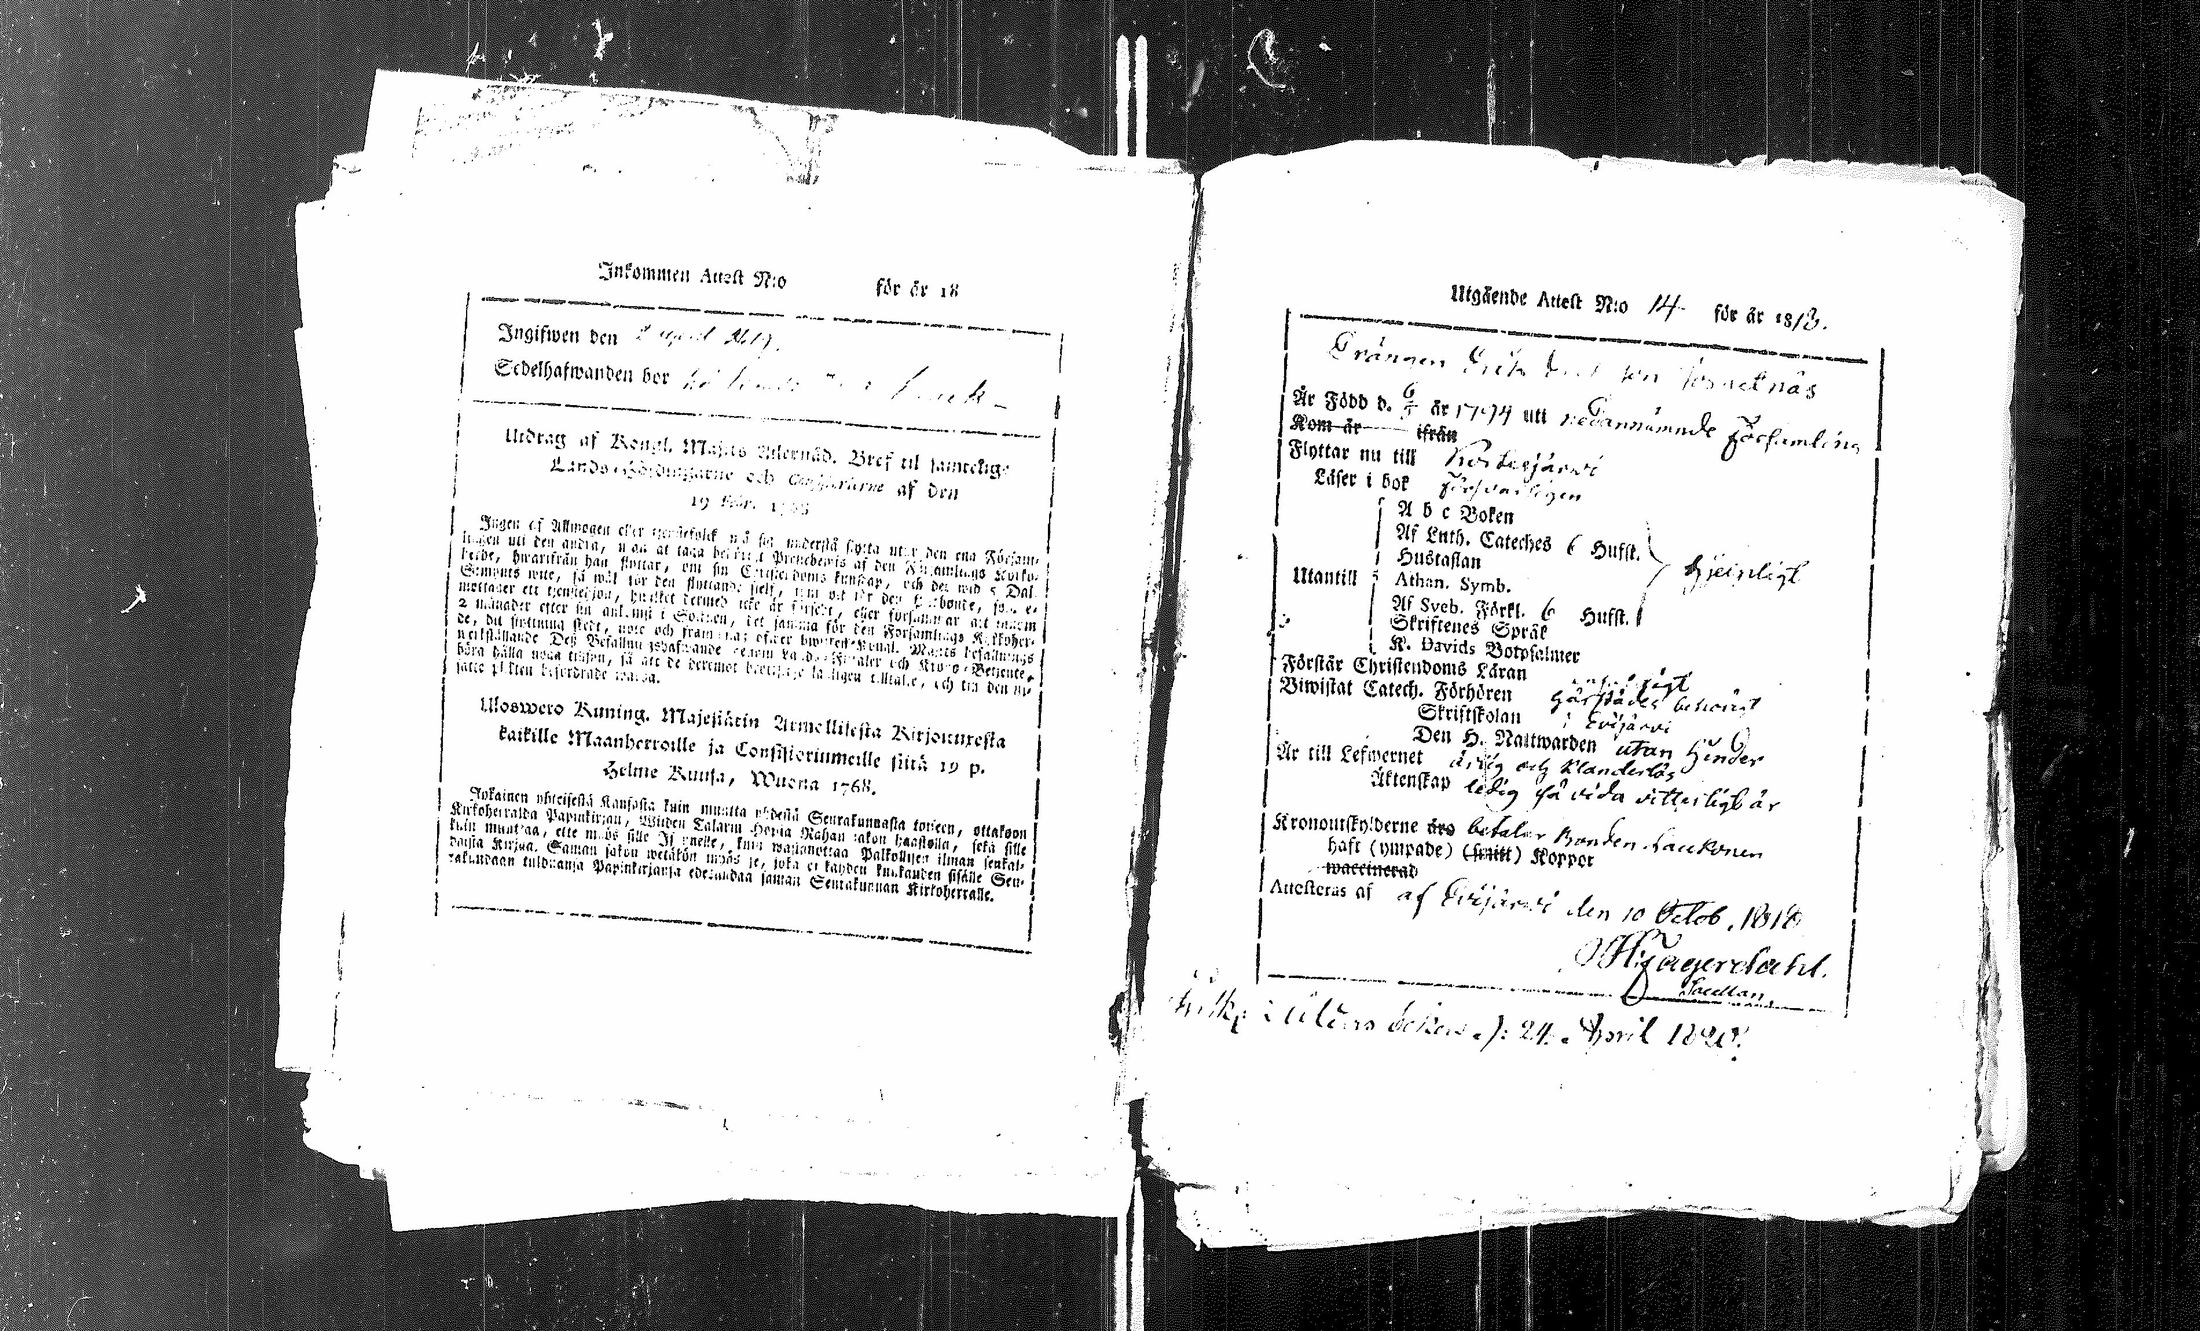 Inkommen Attest N:o för år 18
Ingifwen den 2 april 1819.
Sedelhafwanden bor
Utdrag af Kongl. Maj:ts Allernåd. Bref til samtelige
Lands-Höfdingarne och Consistorierne af den
19 Febr. 1768
Ingen af Allmogen eller tjenstefolck må sig understå flytta utur den ena Försam-
lingen uti den andra, utan at taga behörigt Prestebewis af den Församlings Kyrko-
herde, hwarifrån han flyttar, om sin Christendoms kunskap, och det wid 5 Dal.
Silfwermynts wite, så wäl för den flyttande sjelf, som ock för den Husbonde, som e-
mottager ett tjenstehjon, hwilket dermed icke är försedt, eller försummar att inom
2 månader efter sin ankomst i Socknen, det samma för den Församlings Kyrkoher-
de, dit flyttning skedt, upte och framwisa; Kongl. Maj:ts befallnings
werkställande Deß Befallningshafwande genom Lands-Fiskaler och Krono-Betjente,
böra hålla noga tilsyn, så att de deremot brottslige lagligen tilltalte, och til den ut-
satte plikten befordrade warda.
Uloswero Kuning. Majestätin Armollisesta Kirjoituxesta
kaikille Maanherroille ja Consistoriumeille siitä 19 p.
Helme Kuusa, Wuona 1768.
Jokainen yhteisestä Kansasta kuin muutta yhdestä Seurakunnasta toiseen, ottakoon
Kirkoherralda Papinkirjan, Wiiden Talarin Hopia Rahan sakon haastolla, sekä sille
kuin muuttaa, ette myös sille Isännelle, kuin wastanottaa Palkollisen ilman senkal-
daista Kirjaa. Saman sakon wetäkön myös se, joka ei kahden kuukauden sisälle Seu-
rakundaan tulduansa Papinkirjansa edestandaa saman Seurakunnan Kirkoherralle.
Utgående Attest N:o 14 för år 1818.
Drängen Erik son Josuetnäs
Är Född d. 6/5 år 1794 uti nedannämnde Församling
Kom år ifrån
Flyttar nu till Kortesjärwi
Läser i bok försvarligen
A b c Boken
Af Luth. Cateches 6 Hufst.
Hustaflan
Utantill Athan. Symb.
Af Sveb. Förkl. 6 Hufst.
Skriftenes Språk
K. Davids Botpsalmer
Förstår Christendoms Läran
Biwistat Catech. Förhören behörigt
Skriftskolan i Evijärvi
Den H. Nattwarden utan hinder
Är till Lefwernet ärlig och klanderlös
Äktenskap ledig så vida vitterligt är
Kronoutskylderne äro betalar Bonden Laukonen
haft (ympade) (smitt) Koppor
waccinerad
Attesteras af af Evijärwi den 10 Octob. 1818
Fagerdahl.
Sacellan.
24. April 1820.